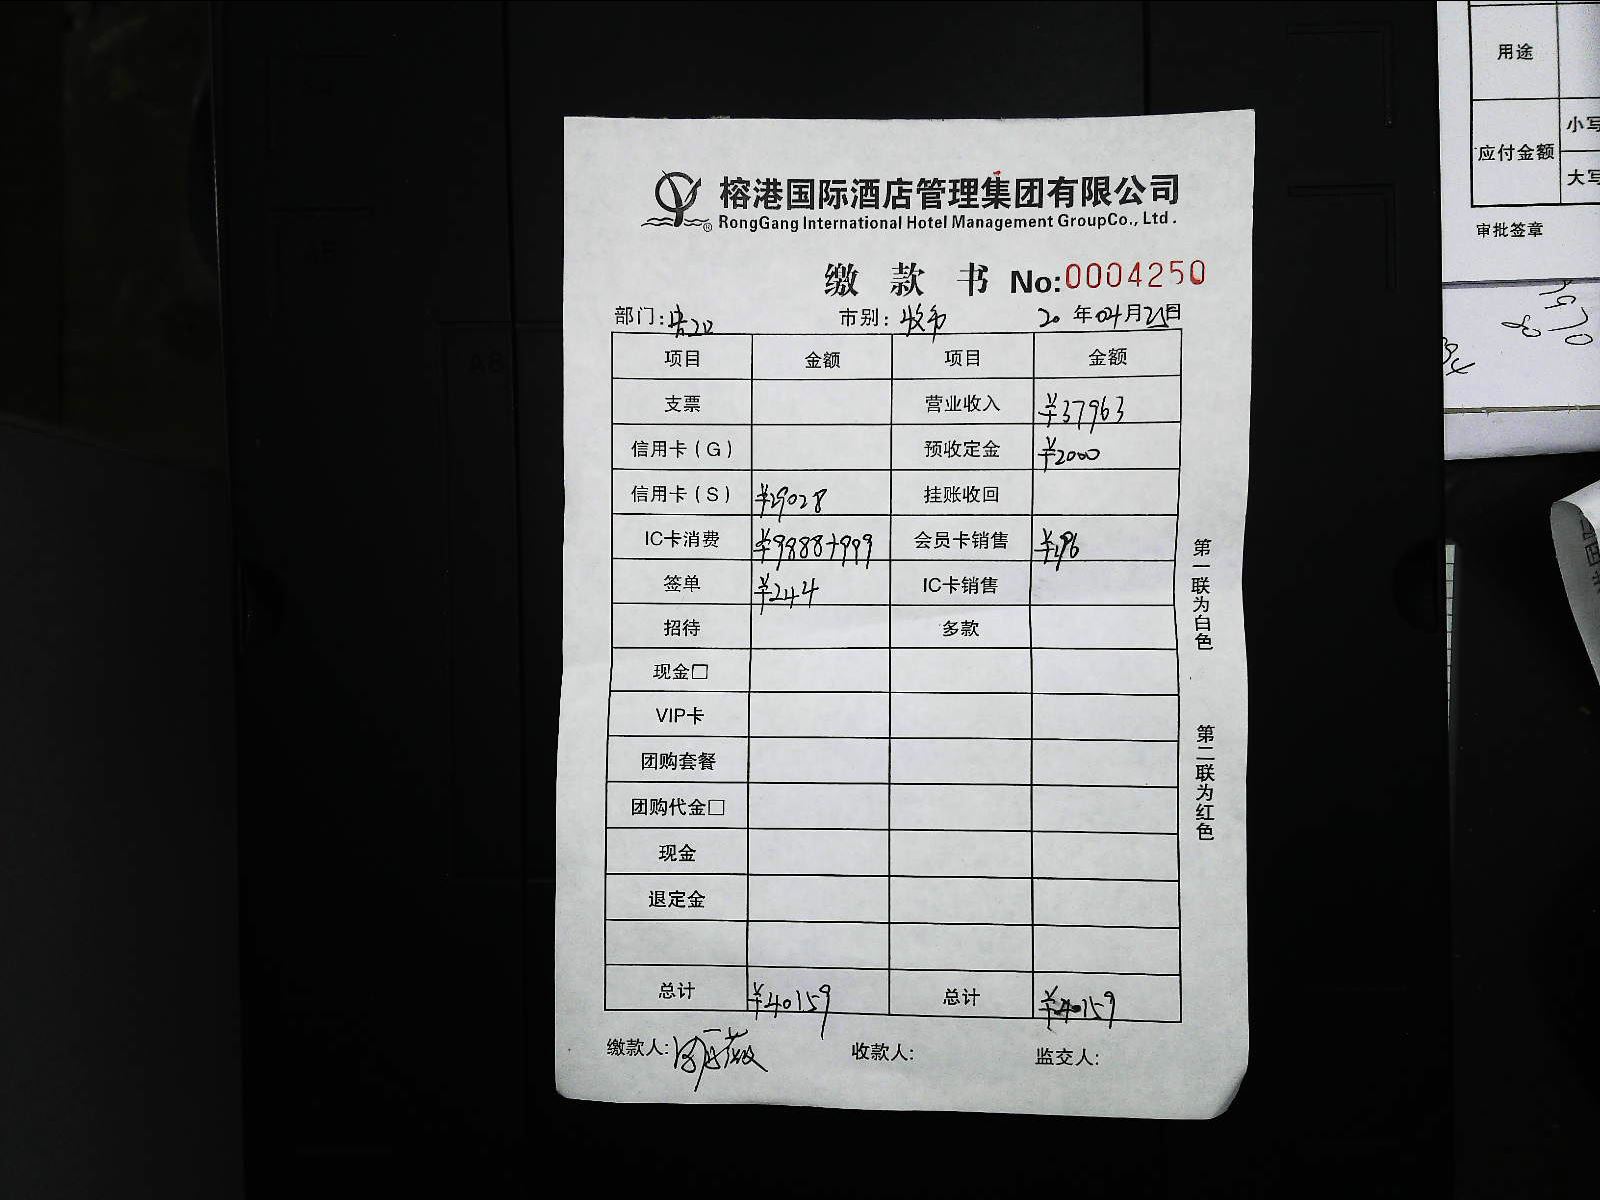 榕港国际酒店管理集团有限公司
® RongGang International Hotel Management GroupCo., Ltd.
缴 款 书 No:0004250
部门: 市别: 收市 20 年 04 月 25 日
项目 金额 项目 金额
支票 营业收入 ¥37963
信用卡(G) 预收定金 ¥2000
信用卡(S) ¥29028 挂账收回
IC卡消费 ¥9888+999 会员卡销售 ¥196
签单 ¥244 IC卡销售
招待 多款
现金□
VIP卡
团购套餐
团购代金□
现金
退定金
总计 ¥40159 总计 ¥40159
缴款人: 收款人: 监交人:
第一联为白色
第二联为红色
用途
应付金额 小写
大写
审批签章